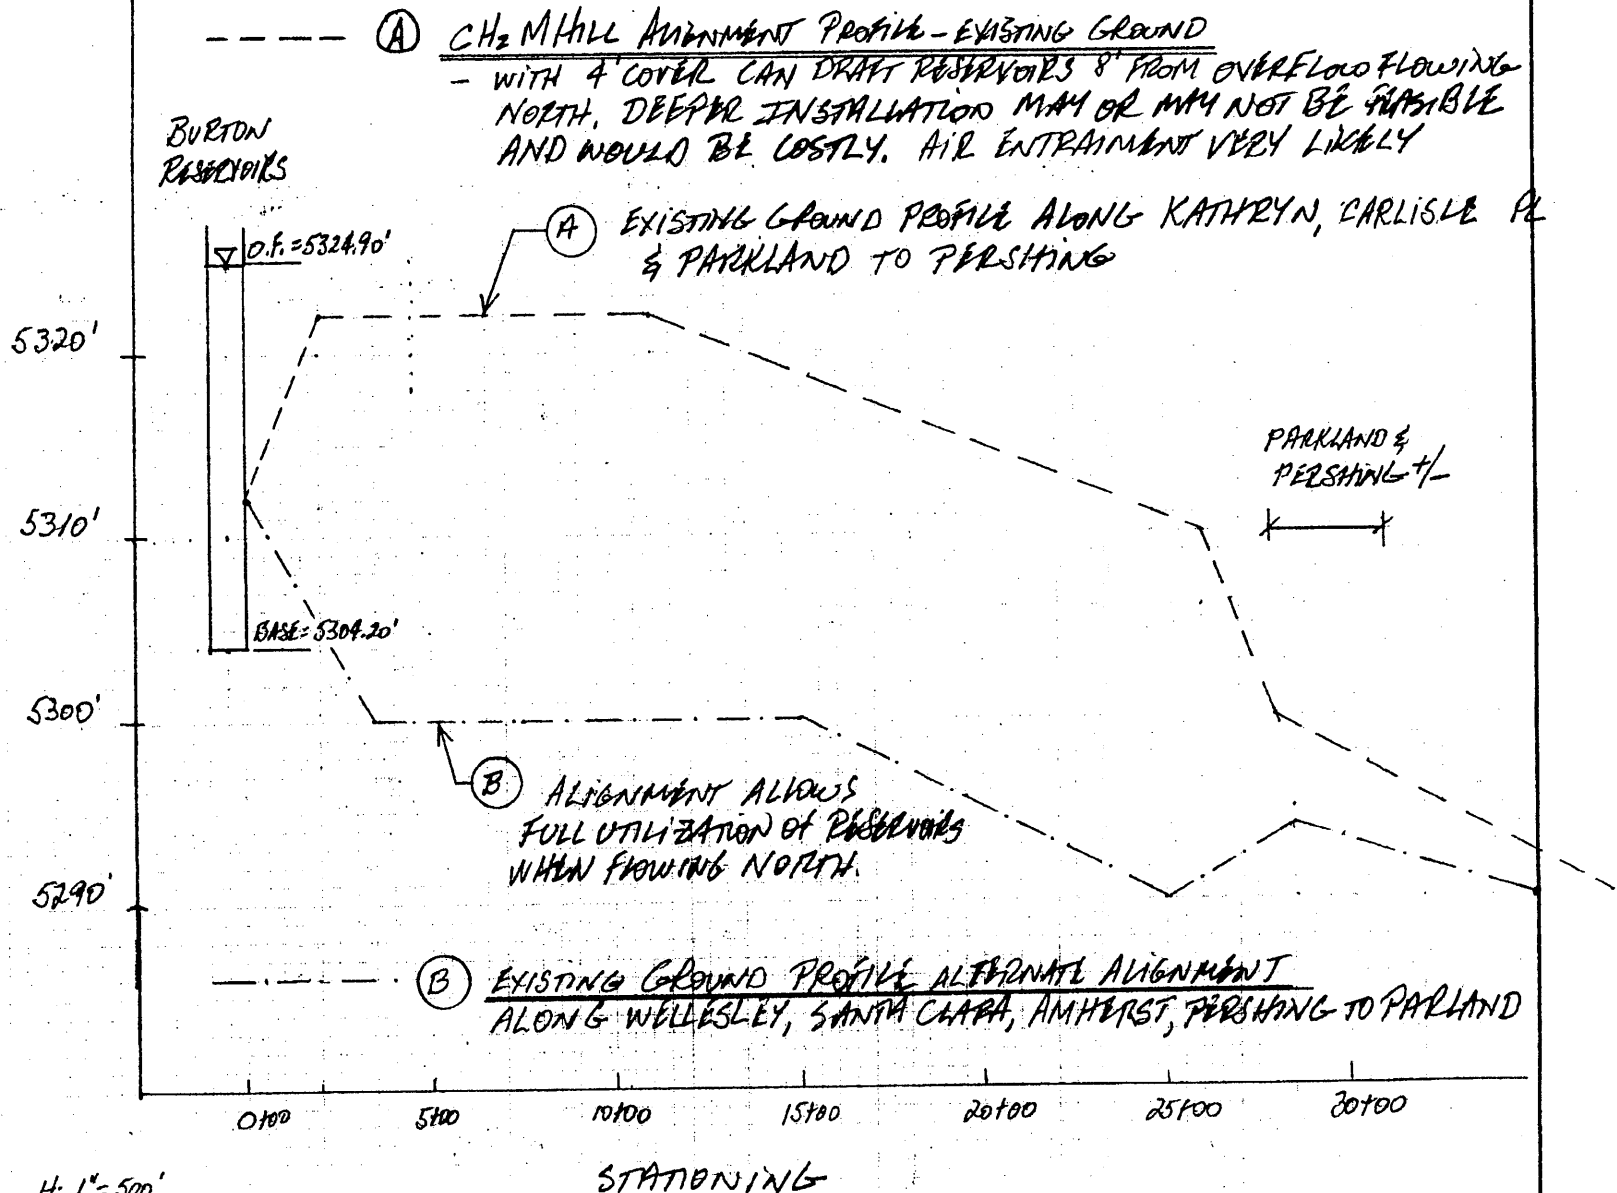 A CH2 MHILL ALIGNMENT PROFILE - EXISTING GROUND
- WITH 4' COVER CAN DRAFT RESERVOIRS 8' FROM OVERFLOW FLOWING
NORTH. DEEPER INSTALLATION MAY OR MAY NOT BE FEASIBLE
AND WOULD BE COSTLY. AIR ENTRAIMENT VERY LIKELY
BURTON
RESERVOIRS
A EXISTING GROUND PROFILE ALONG KATHRYN, CARLISLE PL
& PARKLAND TO PERSHING
O.F. = 5324.90'
5320'
PARKLAND &
PERSHING +/-
5310'
BASE = 5304.20'
5300'
B ALIGNMENT ALLOWS
FULL UTILIZATION OF RESERVOIRS
WHEN FLOWING NORTH.
5290'
B EXISTING GROUND PROFILE ALTERNATE ALIGNMENT
ALONG WELLESLEY, SANTA CLARA, AMHERST, PERSHING TO PARLAND
0+00 5+00 10+00 15+00 20+00 25+00 30+00
STATIONING
H: 1"=500'